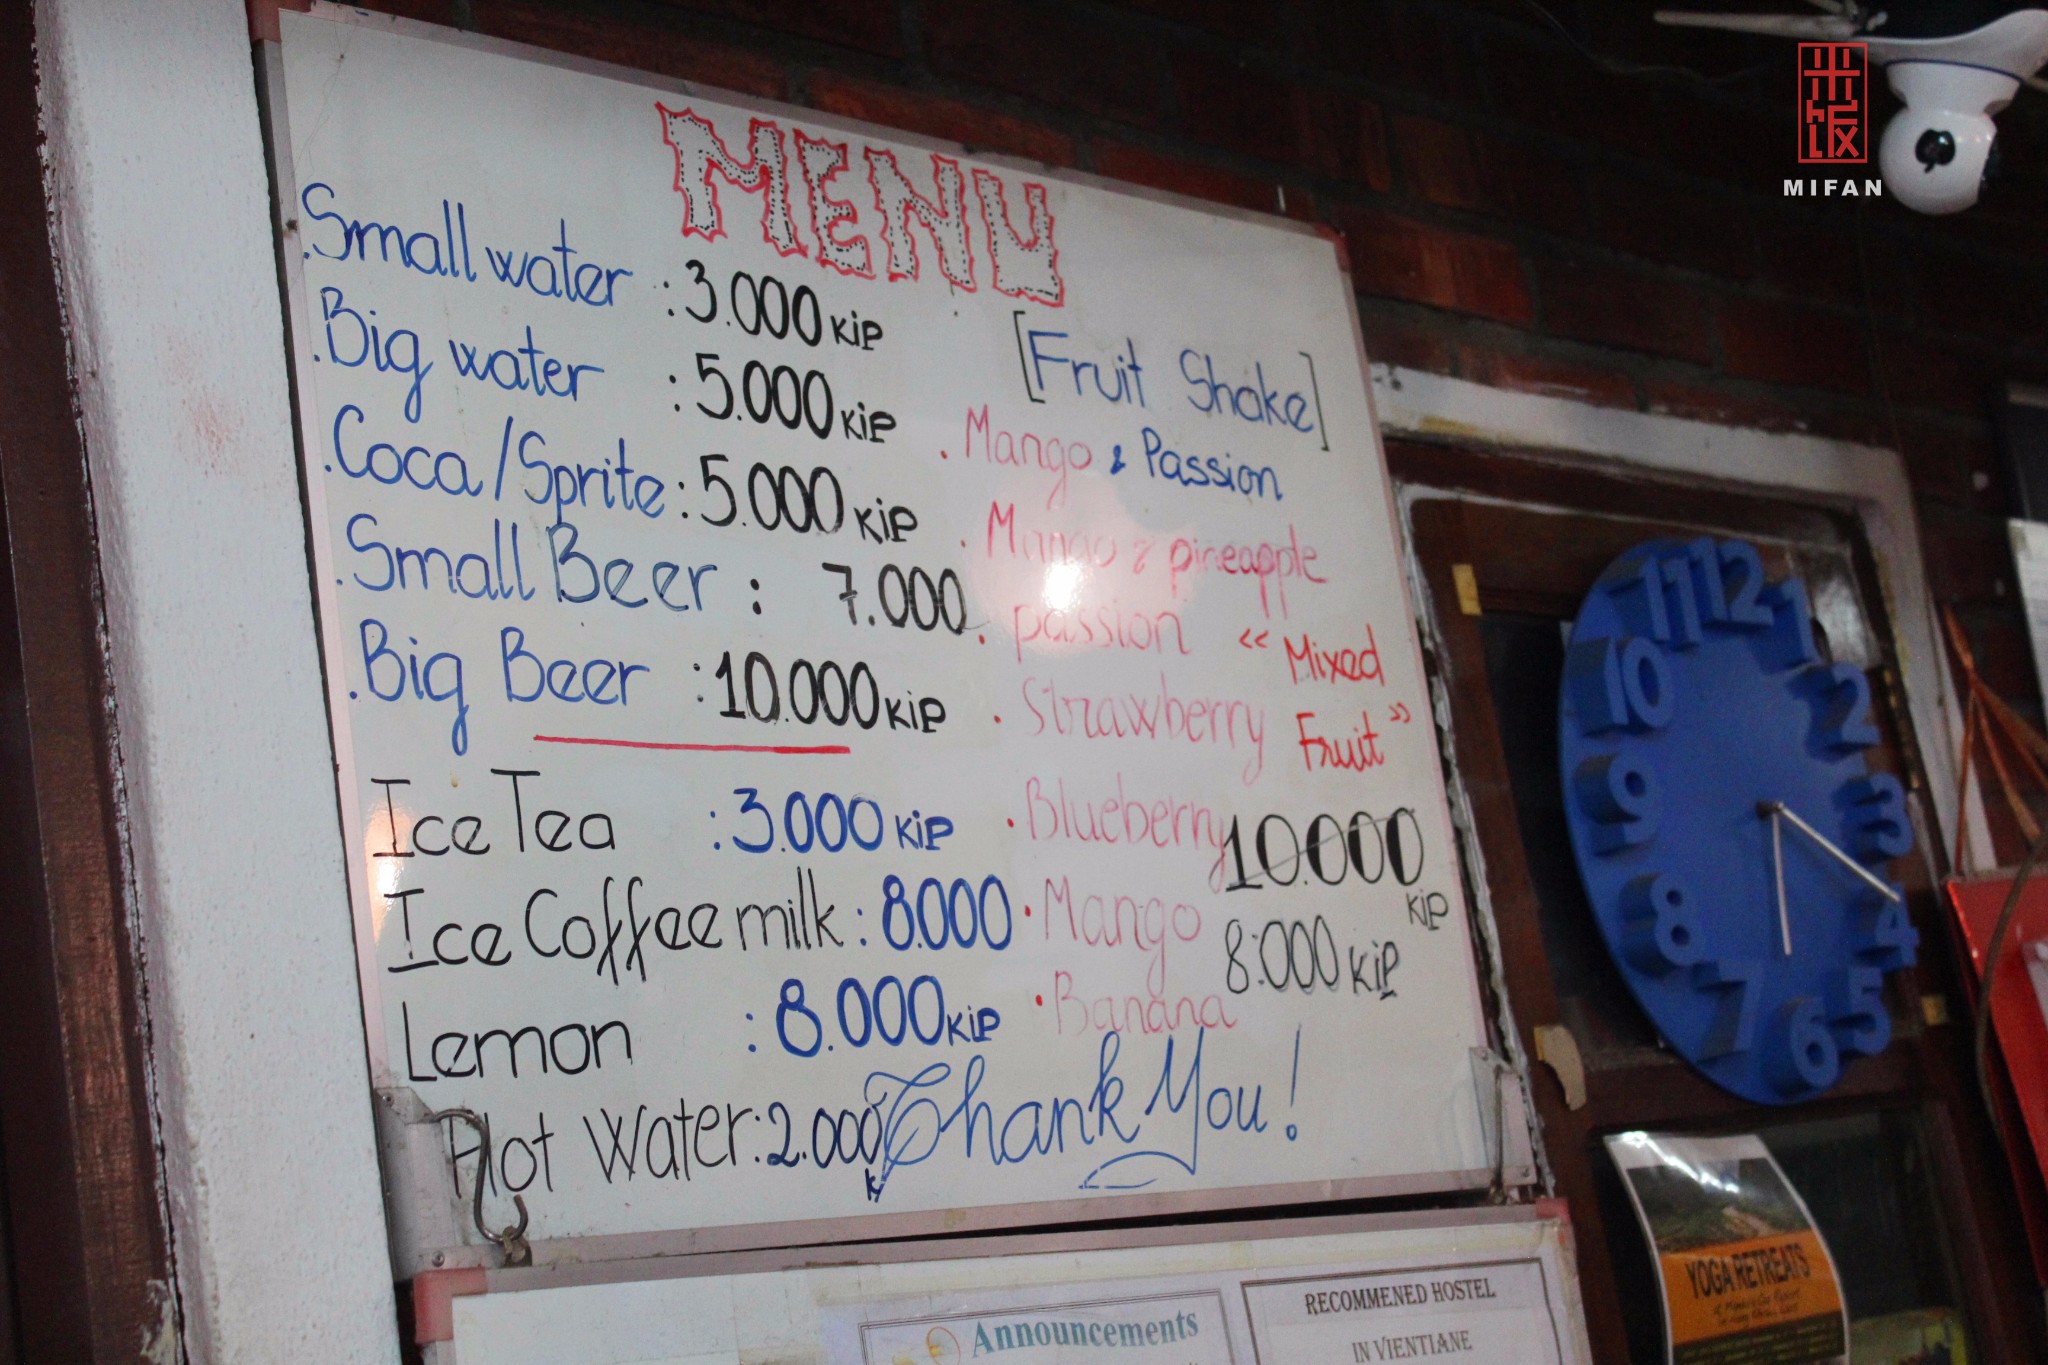 米饭
MIFAN
MENU
.Small water : 3.000 KiP
.Big water : 5.000 KiP
.Coca/Sprite : 5.000 KiP
.Small Beer : 7.000
.Big Beer : 10.000 KiP
Ice Tea : 3.000 KiP
Ice Coffee milk : 8.000
Lemon : 8.000 KiP
Hot Water : 2.000 K
[Fruit Shake]
. Mango & Passion
. Mango & pineapple
. passion
. Strawberry
"Mixed Fruit"
. Blueberry
10.000 KiP
. Mango
8.000 KiP
. Banana
Thank You!
11 12 1
10 2
9 3
8 4
7 6 5
YOGA RETREATS
Announcements
RECOMMENED HOSTEL
IN VIENTIANE